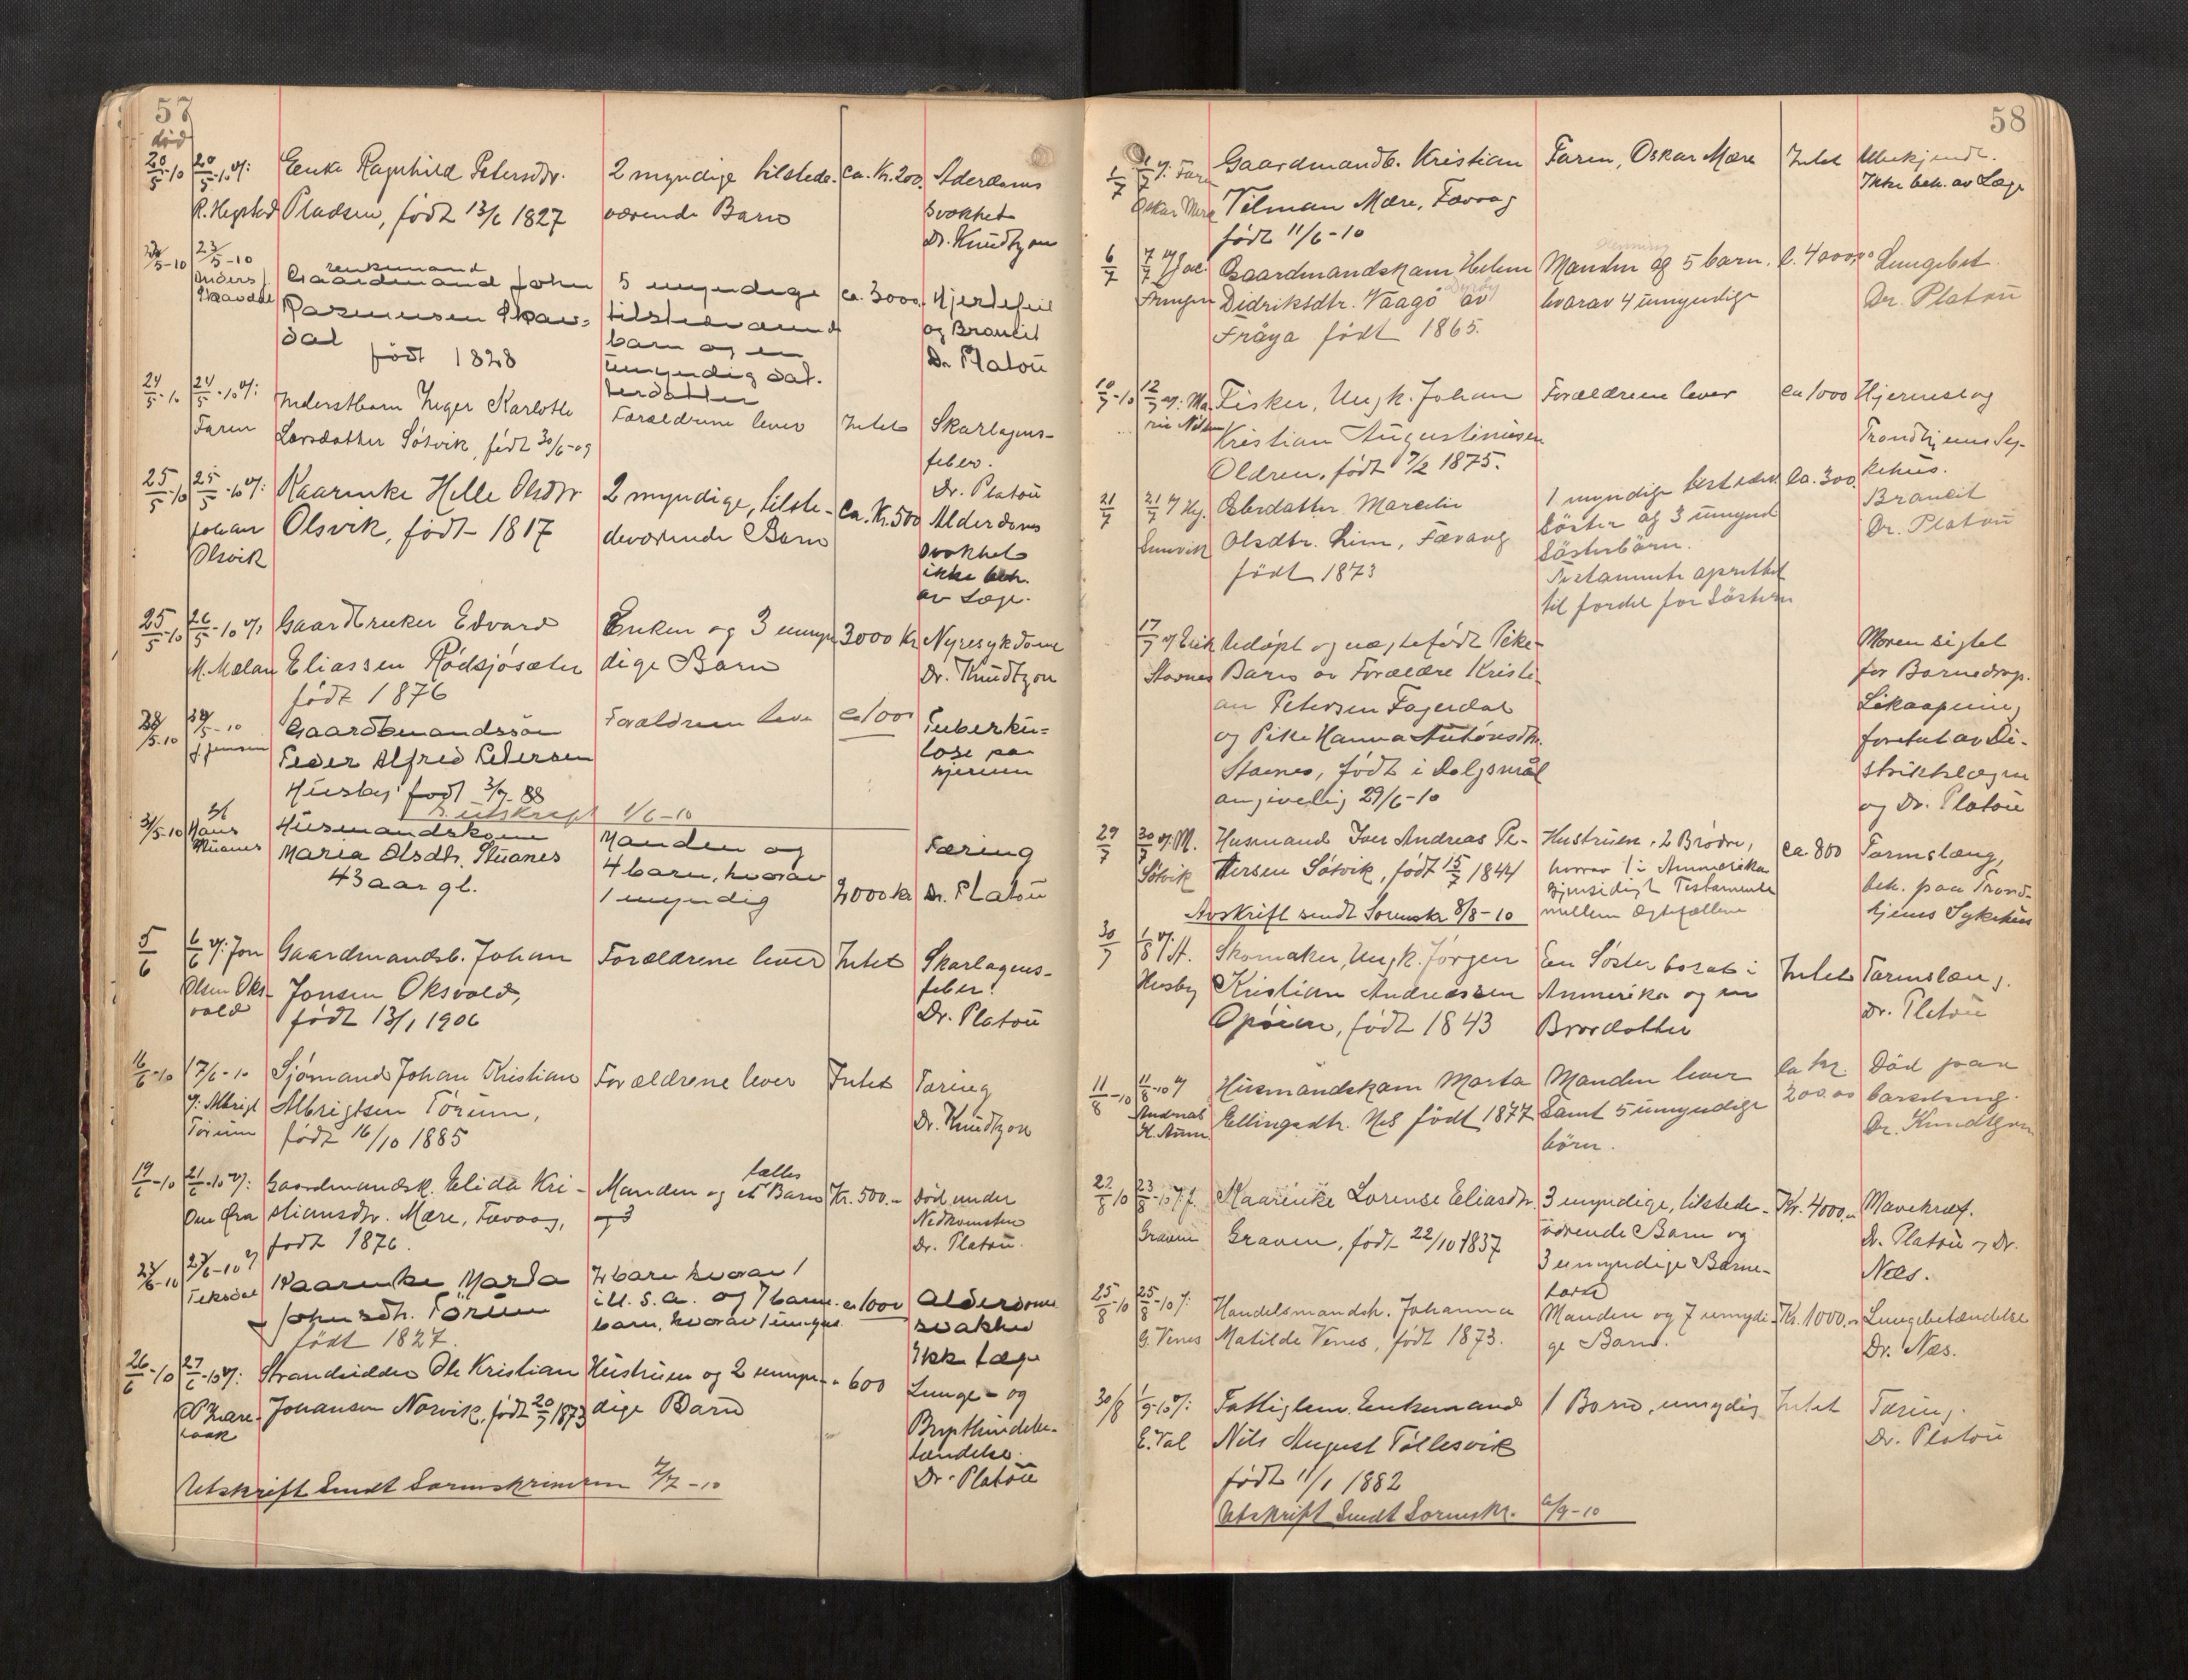 57
død
20/5-10 20/5-10 v/: Enke Ragnhild Petersdtr. 2 myndige tilstede- ca. Kr. 200. Alderdoms
R. Hegstad Pladsen, født 13/6 1827 værende Barn svakhet
Dr. Knudtzon
23/5-10 enkemand
Anders Gaardmand John 5 myndige ca. 3000 Hjertefeil
Skavdal Rasmussen Skav= tilstedværende og Broncit
dal barn og en Dr. Platou
født 1828 umyndig dat.
terdatter
24/5-10 24/5-10 v/: Inderstbarn Inger Karlotte Forældrene lever Intet Skarlagens-
Faren Larsdatter Søtvik, født 30/6-09 feber.
Dr. Platou
25/5-10 25/5-10 v/: Kaarenke Helle Olsdtr 2 myndige, tilste- Ca. Kr. 500 Alderdoms
Johan Olsvik, født 1817 deværende Barn svakhet
Olsvik ikke beh.
av Læge.
25/5-10 26/5-10 v/: Gaardbruker Edvard Enken og 3 umyn 3000 Kr Nyresykdome
M. Mælan Eliassen Rødsjøsæter dige Barn Dr. Knudtzon
født 1876
5-10 Gaardmandssøn Forældrene leve ca 100 Tuberku=
J. Jensen Peder Alfred Petersen lose paa
Husby født 3/9-88 hjernen
utskrift 1/6-10
31/5-10 Hans Husmandskone Manden og Tæring
Stuanes Maria Olsdtr. Stuanes 4 barn, hvorav Dr. Platou
43 aar gl. 1 myndig 2000 kr
5/6 6/6 v/: Jon Gaardmandsb. Johan Forældrene lever Intet Skarlagens-
Olsen Oks- Jonsen Oksvold, feber.
vold født 13/1 1906 Dr. Platou
16/6-10 17/6-10 Sjømand Johan Kristian Forældrene lever Intet Tæring
v/: Albrigt Albrigtsen Tørum, Dr. Knudtzon
Tørum født 16/10 1885
19/6-10 21/6-10 v/: Gaardmandsk. Elida Kri- Manden og et fælles Barn Kr. 500.- Død under
Ole Øra stiansdtr. Mære, Tævaag, Nedkomsten
født 1876. Dr. Platou.
27/6-10 v/ Kaarenke Marta 7 barn hvorav 1
Teksdal Johnsdtr. Tørum i U.S.A. og 7 barne- ca 1000 Alderdoms
født 1827. barn, hvorav 1 umyn. svakhed
Ikke læge
26/6-10 27/6-10 v/: Strandsidder Ole Kristian Hustruen og 2 umyn- " 600 Lunge- og
Johansen Norvik, født 20/7 1873 dige Barn Brysthindebe-
tændelse.
Dr. Platou
Utskrift sendt Sorenskriveren 2/7-10
58
1/7 1/7 v/: Faren Gaardmandsb. Kristian Faren, Oskar Mære Intet Ubekjendt.
Oskar Mære Tilman Mære, Tævaag Ikke beh. av Læge
født 11/6-10
6/7 7/7 v/ Jac. Gaardmandskone Helene Manden og 5 barn. C. 4000,00 Lungebet.
Didriksdtr. Vaagø av hvorav 4 umyndige Dr. Platou
Frøya født 1865.
10/7-10 12/7 v/: Ma Fisker, Ungk. Johan Forældrene lever ca 1000 Hjerneslag
rie Nilsen Kristian Augustinussen Trondhjems Sy-
Oldren, født 7/2 1875. kehus.
21/7 21/7 v/ Hj. Ebsdatter Marcelie 1 myndige Ca. 300. Broncit
Sunvik Olsdtr. Lim, Tævaag Søster og 3 umynd Dr. Platou
født 1873 Søsterbørn.
Testamente oprettet
til fordel for Søsteren
17/7 v/ Erik Udøpt og uægtefødt Pike- Moren sigtet
Stavnes Barn av Forældre Kristi- for Barnedrap.
an Petersen Fagerdal Likaapning
og Pike Hanna Antonsdtr. foretat av Di-
Stavnes, født i Dølgsmål striktslægen
angivelig 29/6-10 og Dr. Platou
29/7 30/7 v/: M. Husmand Iver Andreas Pe- Hustruen, 2 Brødre, ca 800 Tarmslæng,
Søtvik tersen Søtvik, født 15/7 1844 hvorav 1 i Ammerika beh. paa Trond-
gjensidigt Testamente hjems Sykehus
Avskrift sendt Sorenskr 8/8-10 mellem Ægtefællene
30/7 1/8 v/: A. Skomaker, Ungk. Jørgen En Søster bosat i Intet Tarmslæng.
Husby Kristian Andreassen Ammerika og en Dr. Platou
Opøien, født 1843 Brordatter
11/8-10 11/8-10 v/ Husmandskone Marta Manden lever Ca Kr. Død paa
Andreas Ellingsdtr. Nes født 1877 samt 5 umyndige 200.00 barselseng.
H. Aune børn. Dr. Knudtzon
22/8 10 23/8-10 v/: J. Kaarenke Lorense Eliasdtr. 3 myndige, tilstede- Kr. 4000.- Mavekræf.
Graven Graven, født 22/10 1837 værende Barn og Dr. Platou og Dr.
3 umyndige Barne- Næs.
barn
25/8-10 25/8-10 v/: Handelsmandsk. Johanna Manden og 7 umyndi- Kr. 1000.- Lungebetændelse
G. Venes Matilde Venes, født 1873. ge Barn. Dr. Næs.
30/8 1/9-10 v/: Fattiglem Enkemand 1 Barn, umyndig Intet Tæring.
E. Val Nils August Tøllesvik Dr. Platou
født 11/1 1882
Utskrift sendt Sorenskr. 6/9-10